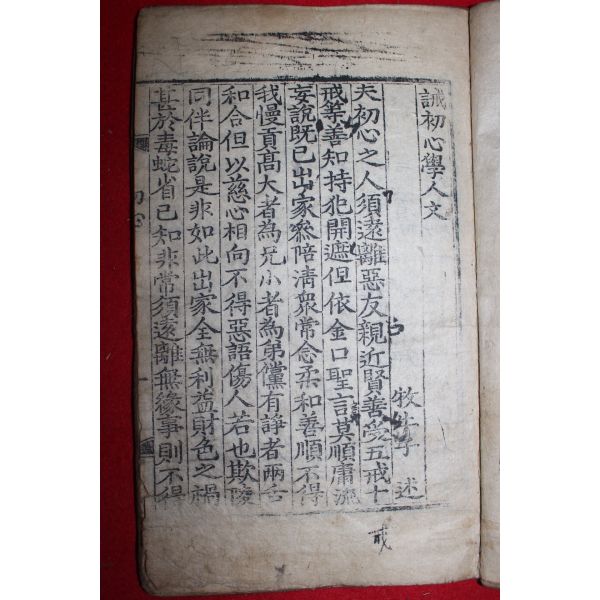 誡初心學人文
牧牛子 述
夫初心之人須遠離惡友親近賢善受五戒十
戒等善知持犯開遮但依金口聖言莫順庸流
妄說旣已出家叅陪淸衆常念柔和善順不得
我慢貢高大者為兄小者為弟儻有諍者兩舌
和合但以慈心相向不得惡語傷人若也欺陵
同伴論說是非如此出家全無利益財色之禍
甚於毒蛇省己知非常須遠離無緣事則不得
初心
戒